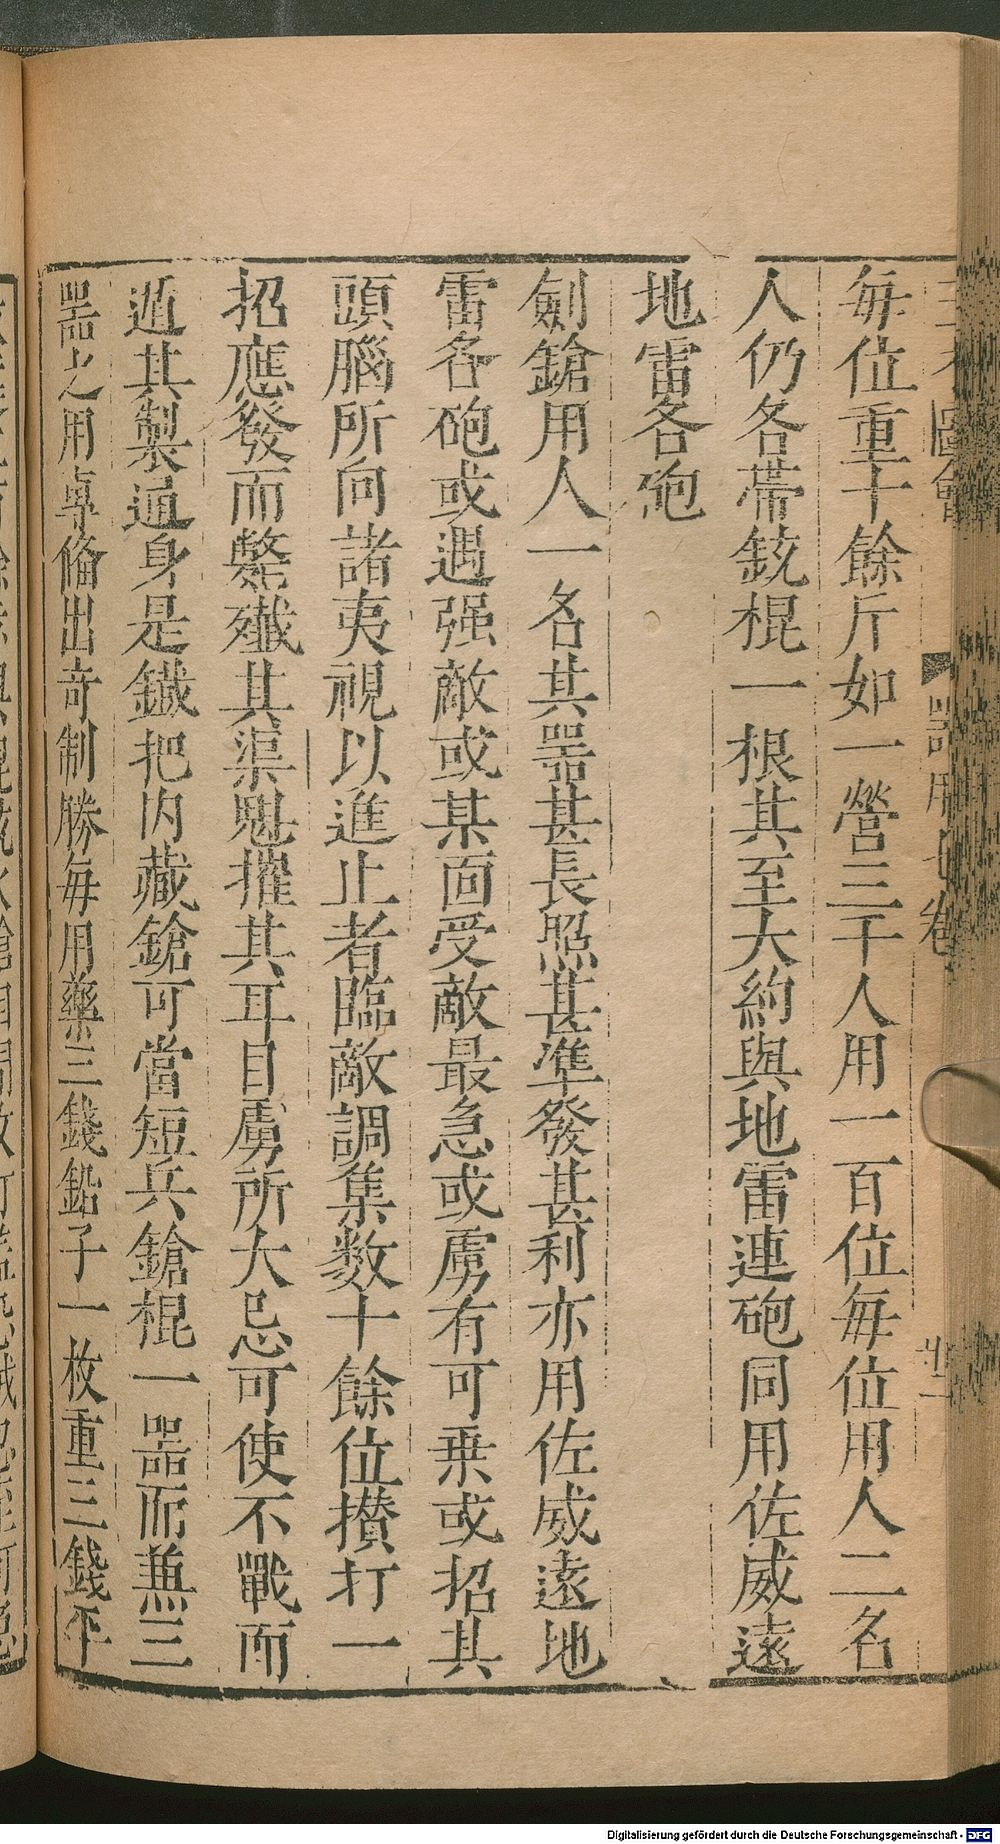 每位重十餘斤如一營三千人用一百位每位用人二名
人仍各帶銃棍一根其至大約與地雷連砲同用佐威遠
地雷各砲
劍鎗用人一名其器甚長照甚準發甚利亦用佐威遠地
雷各砲或遇强敵或某面受敵最急或虜有可乗或招其
頭腦所向諸夷視以進止者臨敵調集数十餘位攅打一
招應發而斃殲其渠魁摧其耳目虜所大忌可使不戰而
遁其製通身是鐵把内藏鎗可當短兵鎗棍一器而兼三
器之用專偹出奇制勝每用藥三錢鉛子一枚重三錢平
圖會
器用七卷
Digitalisierung gefördert durch die Deutsche Forschungsgemeinschaft - DFG